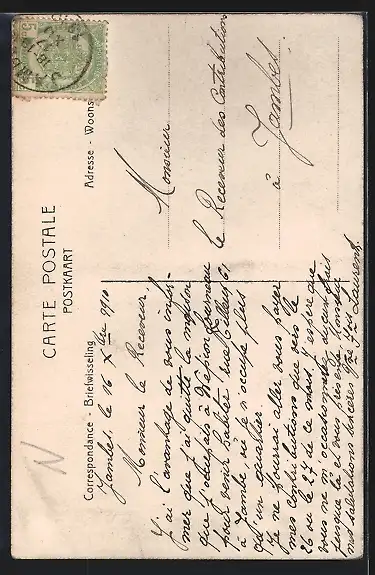 CARTE POSTALE
POSTKAART
Correspondance - Briefwisseling
Adresse - Woons
Jambes, le 16 Xbre 1910
Monsieur le Receveur,
J'ai l'avantage de vous infor-
mer que j'ai quitté la maison
que j'occupais à
pour venir habiter rue Tilleul 61
à Jambes, où je n'occupe plus
qu'un quartier.
Je ne pourrai aller vous payer
mes contributions que vers le
26 ou le 27 de ce mois. J'espère que
vous ne m'occasionnerez aucun frais
jusque là et vous présente, Monsieur,
mes salutations sincères
Laurent
Monsieur
le Receveur des Contributions
à Jambes